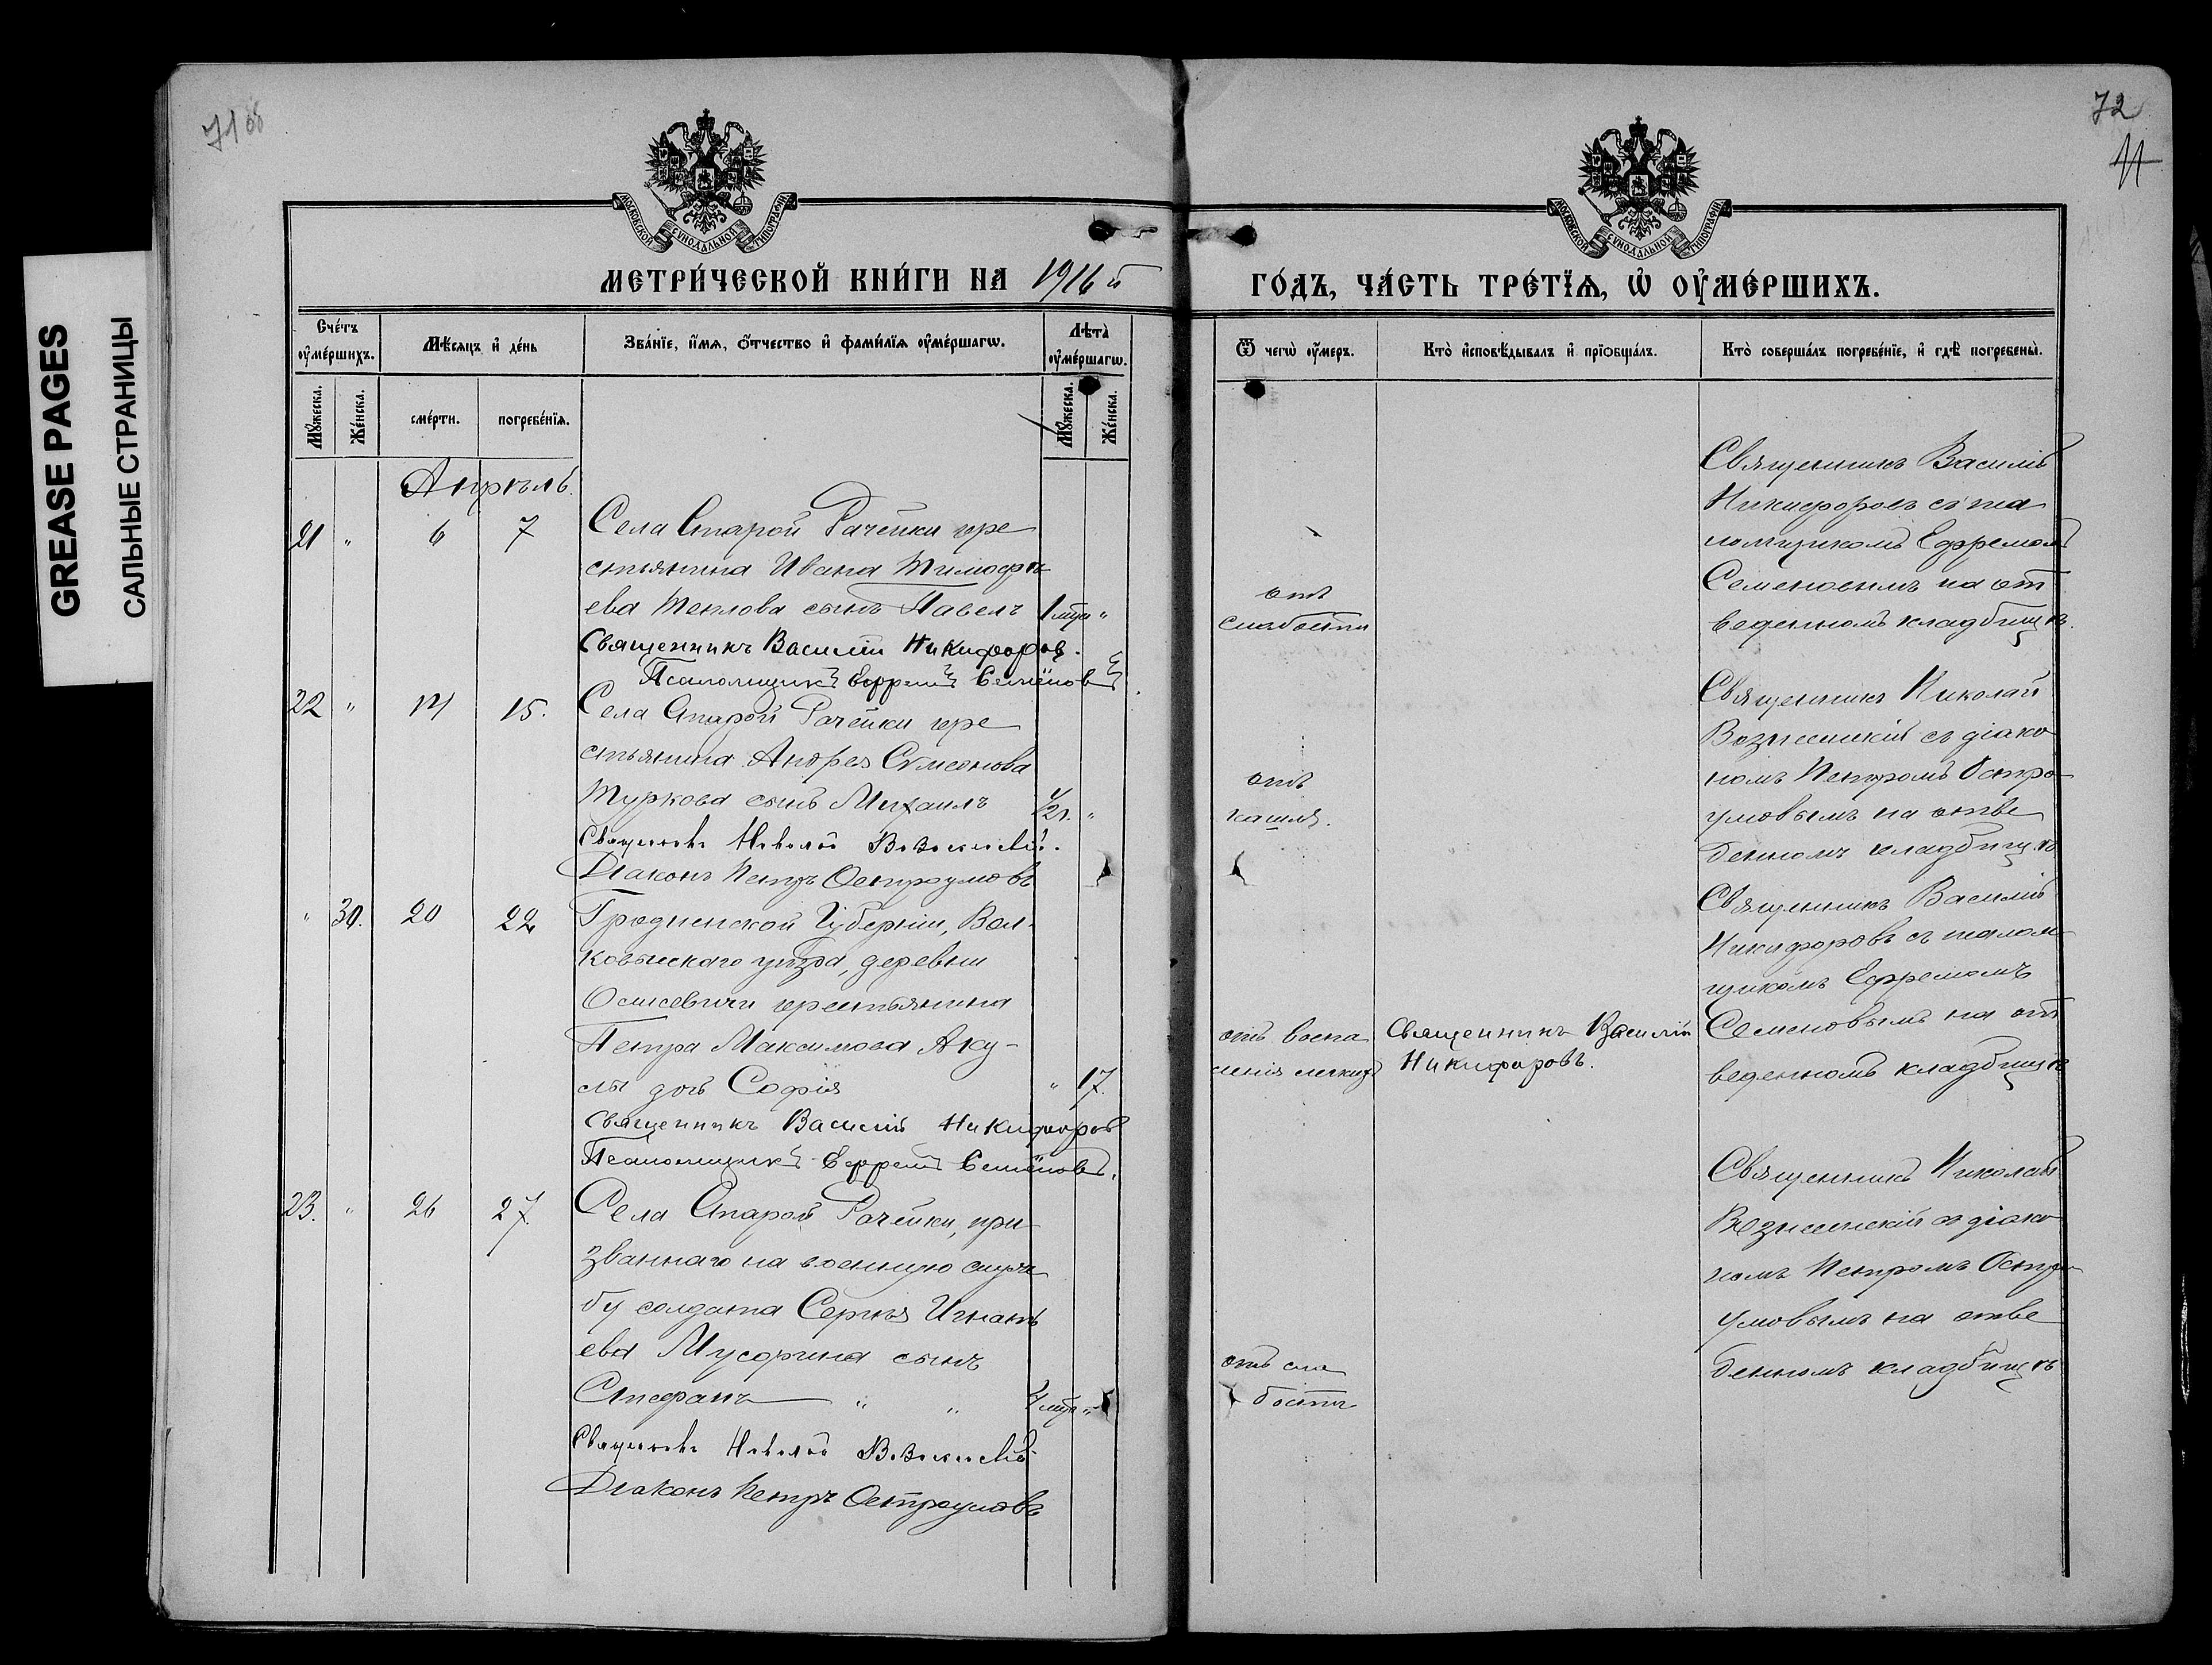 71об
72
11
GREASE PAGES
САЛЬНЫЕ СТРАНИЦЫ
МОСКОВСКОЙ СѴНОДАЛЬНОЙ ТИПОГРАФІИ
МОСКОВСКОЙ СѴНОДАЛЬНОЙ ТИПОГРАФІИ
МЕТРИ́ЧЕСКОЙ КНИ́ГИ НА 1916й
ГО́ДЪ, ЧА́СТЬ ТРЕ́ТЇѦ, Ѡ҆ ОУ҆МЕ́РШИХЪ.
Сче́тъ оу҆ме́ршихъ.
Мѣ́сяцъ и҆ де́нь
Зва́нїе, и҆́мя, о҆́тчество и҆ фами́лїя оу҆ме́ршагѡ.
Лѣта̀ оу҆ме́ршагѡ.
Мꙋ́жеска.
Же́нска.
сме́рти.
погребе́нїя.
Мꙋ́жеска.
Же́нска.
Ѿ чегѡ̀ оу҆́меръ.
Кто̀ и҆сповѣ́дывалъ и҆ прїѡбща́лъ.
Кто̀ соверша́лъ погребе́нїе, и҆ гдѣ̀ погребены̀.
Апрѣль.
21 " 6 7 Села Старой Рачейки кре
стьянина Ивана Тимофѣ
ева Теплова сынъ Павелъ 1 мѣс "
Священникъ Василій Никифоров.
Псаломщикъ Ефремъ Семёновъ
отъ
слабости
Священникъ Василій
Никифоровъ съ пса
ломщикомъ Ефремомъ
Семеновымъ на от
веденномъ кладбищѣ.
22 " 14 15. Села Старой Рачейки кре
стьянина Андрея Сѵмеонова
Туркова сынъ Михаилъ 1/2 г. "
Священникъ Николай Вознесенскій.
Діаконъ Петръ Остроумовъ
отъ
кашля.
Священникъ Николай
Вознесенскій съ діако
номъ Петромъ Остро-
умовымъ на отве
денномъ кладбищѣ
" 30. 20 22 Гродненской Губерніи, Вол-
ковыскаго уѣзда, деревни
крестьянина
Петра Максимова Аку-
лы дочь Софія " 17.
Священникъ Василій Никифоров
Псаломщикъ Ефремъ Семёновъ.
отъ воспа
ленія легкихъ
Священникъ Василій
Никифоровъ.
Священникъ Василій
Никифоровъ съ псалом-
щикомъ Ефремомъ
Семеновымъ на от
веденномъ кладбищѣ
23. " 26 27. Села Старой Рачейки, при-
званнаго на военную служ
бу солдата Сергѣя Игнать
ева Мусорина сынъ
Стефанъ " " мѣс "
Священникъ Николай Вознесенскій
Діаконъ Петръ Остроумовъ
отъ сла
бости
Священникъ Николай
Вознесенскій съ діако
номъ Петромъ Остро-
умовымъ на отве
денномъ кладбищѣ